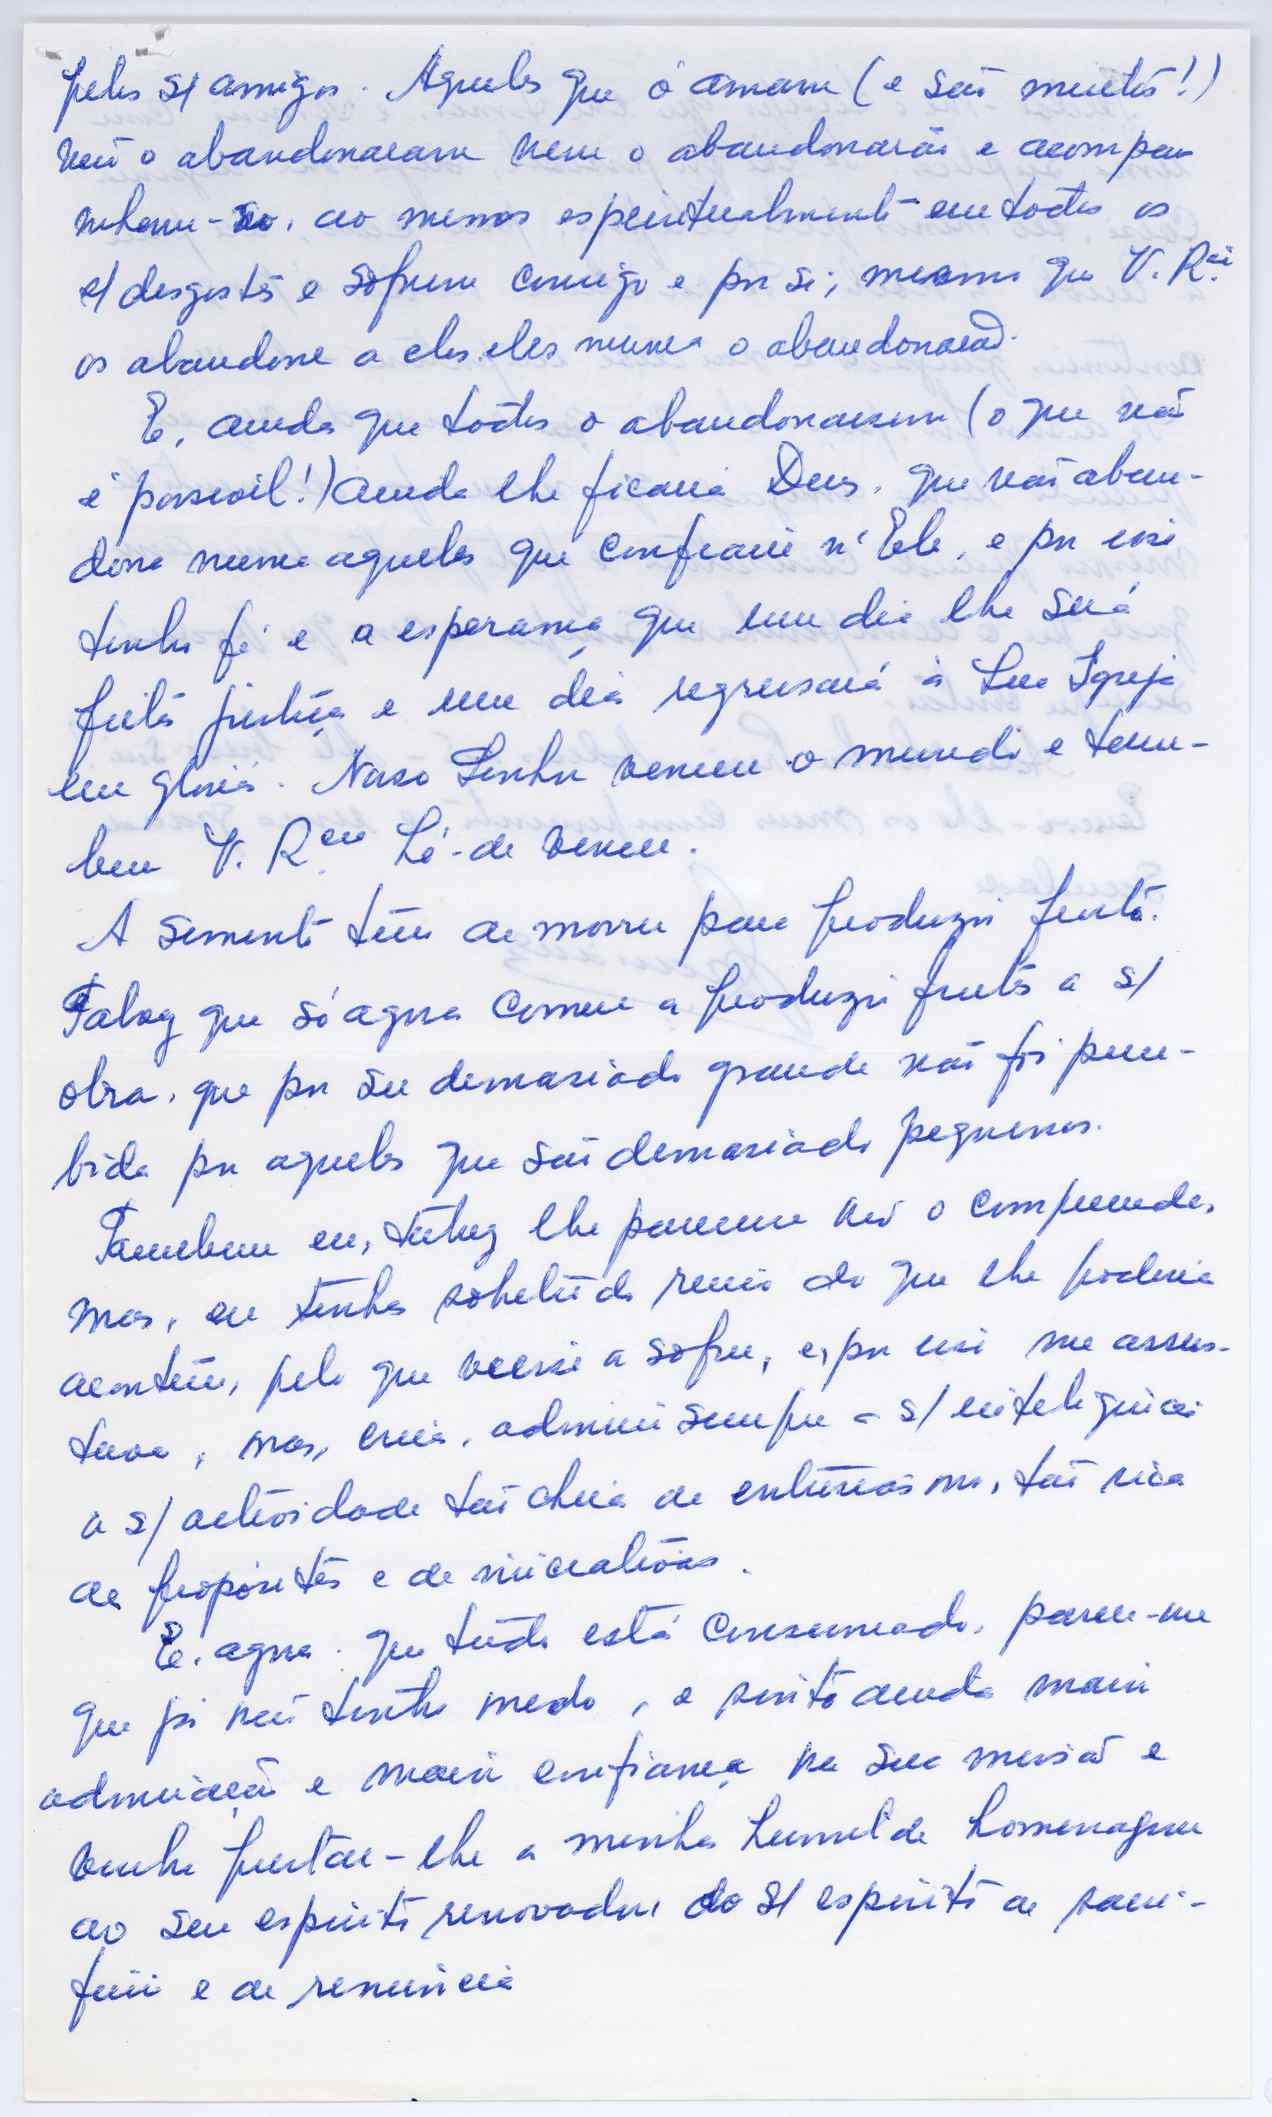 pelos s/ amigos. Aqueles que o amam (e são muitos!)
não o abandonaram nem o abandonarão e acompa
nham-no, ao menos espiritualmente em todos os
s/ desgostos e sofrem consigo e por si; mesmo que V. Rcia
os abandone a eles eles nunca o abandonarão.
E, ainda que todos o abandonassem (o que não
é possivel!) ainda lhe ficaria Deus, que não aban-
dona nunca aqueles que confiam n'Ele, e por isso
tenho fé e a esperança que um dia lhe será
feita justiça e um dia regressará à Sua Igreja
em glória. Nosso Senhor venceu o mundo e tam-
bem V. Rcia Há-de vencer.
A semente têm de morrer para produzir fruto.
Talvez que só agora comece a produzir frutos a s/
obra, que por ser demasiado grande não foi perce-
bida por aqueles que são demasiado pequenos.
Tambem eu, talvez lhe parecesse não o compreender,
mas, eu tinha sobretudo receio do que lhe poderia
acontecer, pelo que viesse a sofrer, e, por isso me assus-
tava, mas, creia, admirei sempre a s/ inteligência
a s/ actividade tão cheia de entusiasmo, tão rica
de propositos e de iniciativas.
E, agora que tudo está consumado, parece-me
que já não tenho medo, e sinto ainda mais
admiração e mais confiança na sua missão e
venho prestar-lhe a minha humilde homenagem
ao seu espirito renovador do s/ espirito de sacri-
ficio e de renuncia